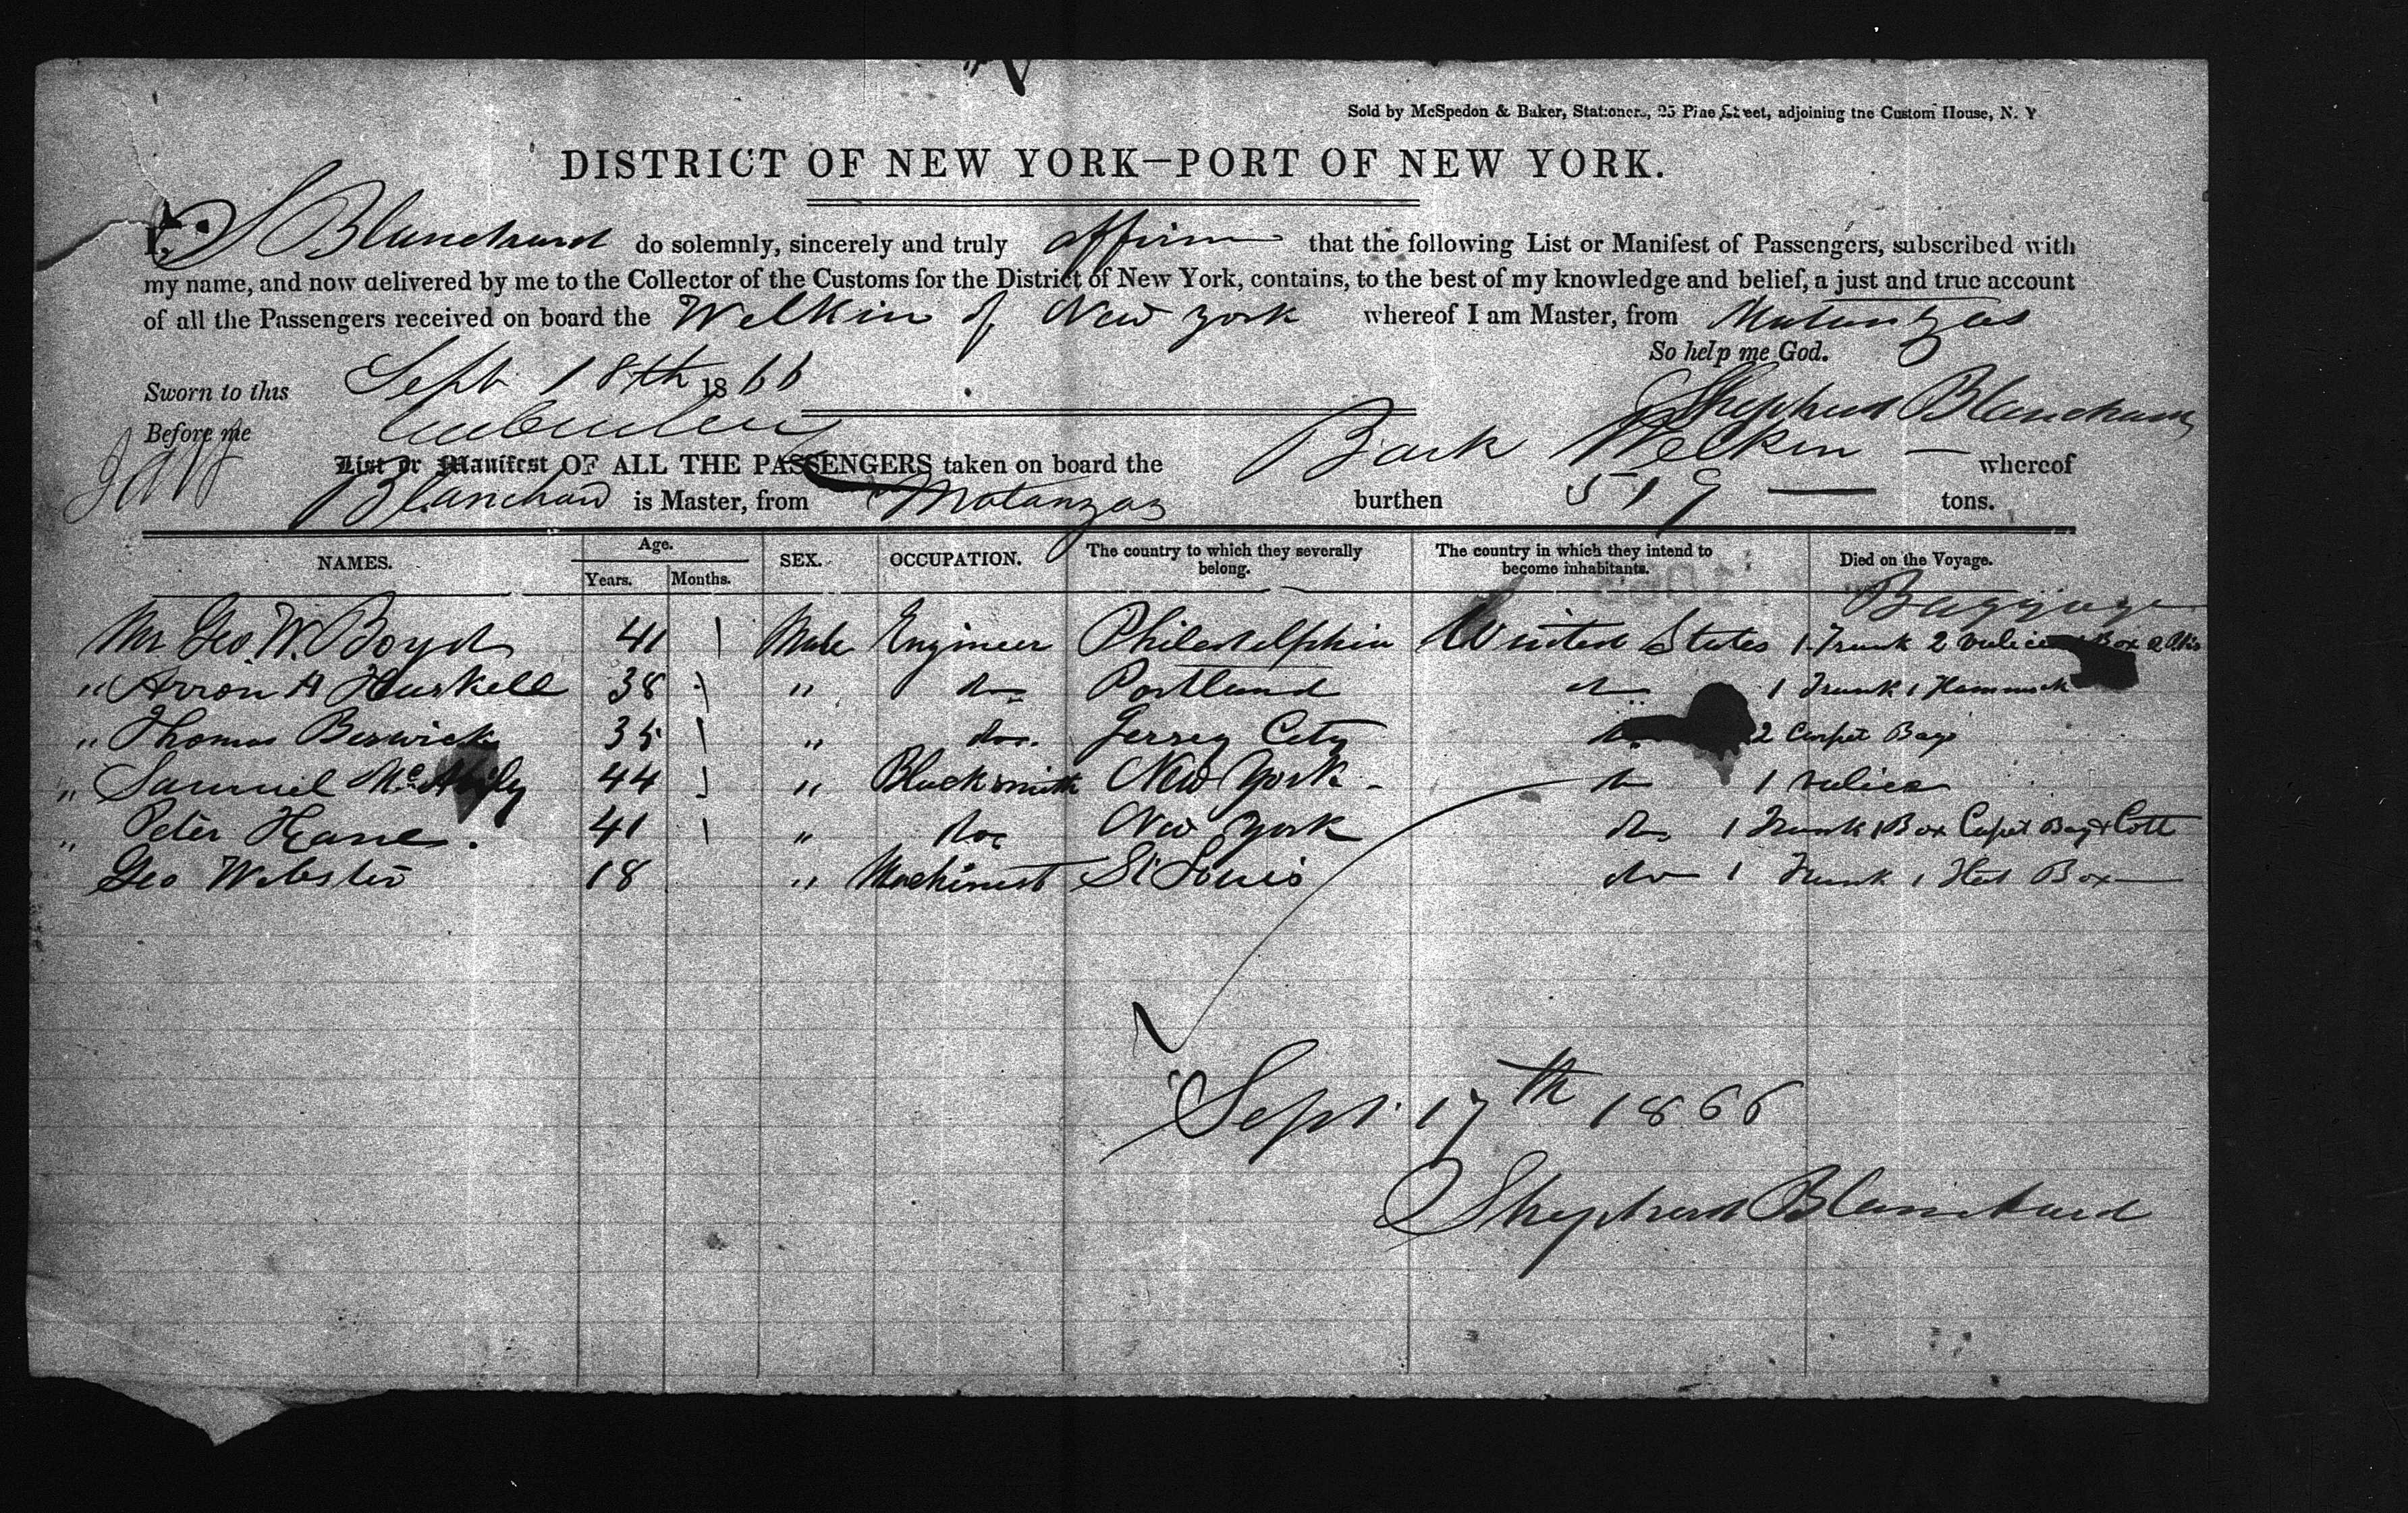 Sold by McSpedon & Baker, Stationers, 25 Pine Street, adjoining the Custom House, N. Y
DISTRICT OF NEW YORK—PORT OF NEW YORK.
I, S Blanchard do solemnly, sincerely and truly affirm that the following List or Manifest of Passengers, subscribed with
my name, and now delivered by me to the Collector of the Customs for the District of New York, contains, to the best of my knowledge and belief, a just and true account
of all the Passengers received on board the Welkin of New York whereof I am Master, from Matanzas
So help me God.
Sworn to this Sept 18th 1866
Shepherd Blanchard
Before me
List or Manifest OF ALL THE PASSENGERS taken on board the Bark Welkin — whereof
Blanchard is Master, from Matanzas burthen 519 — tons.
NAMES. Age. Years. Months. SEX. OCCUPATION. The country to which they severally belong. The country in which they intend to become inhabitants. Died on the Voyage.
Baggage
Mr Geo. W. Boyd 41 Male Engineer Philadelphia United States 1 Trunk 2 valices Box
" Arron H Haskell 38 " do Portland do 1 Trunk 1 Hammock
" Thomas Beswick 35 " do. Jersey City do 2 Carpet Bags
" Samuel Mc 44 " Blacksmith New York - do 1 valice
" Peter Heane. 41 " do New York do 1 Trunk 1 Box Carpet Bag & Cott
Geo Webster 18 " Machinest St Louis do 1 Trunk 1 Hat Box
Sept 17th 1866
Shepherd Blanchard